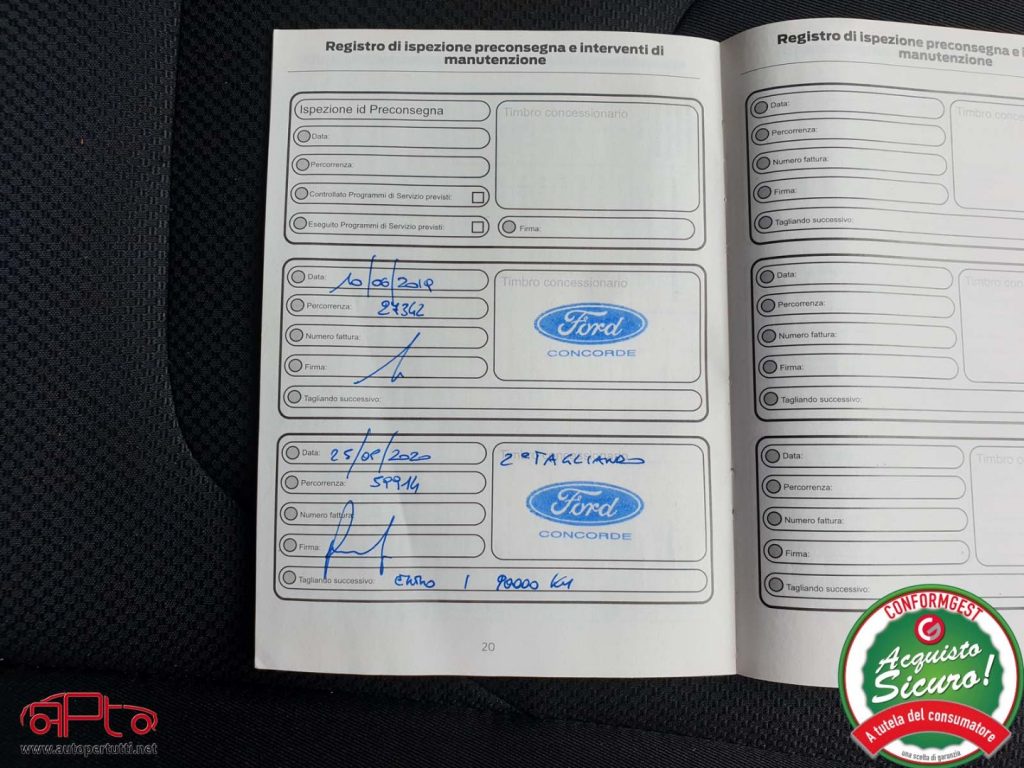 Registro di ispezione preconsegna e interventi di
manutenzione
Ispezione id Preconsegna
Timbro concessionario
Data:
Percorrenza:
Controllato Programmi di Servizio previsti:
Eseguito Programmi di Servizio previsti:
Firma:
Data: 10/06/2019
Timbro concessionario
Percorrenza: 27342
Numero fattura:
Firma:
Ford
CONCORDE
Tagliando successivo:
Data: 25/09/2020
2° TAGLIANDO
Percorrenza: 59914
Numero fattura:
Firma:
Ford
CONCORDE
Tagliando successivo: entro 90000 KM
20
Registro di ispezione preconsegna e i
manutenzione
Data:
Timbro conces
Percorrenza:
Numero fattura:
Firma:
Tagliando successivo:
Data:
Timbro con
Percorrenza:
Numero fattura:
Firma:
Tagliando successivo:
Data:
Timbro co
Percorrenza:
Numero fattura:
Firma:
Tagliando successivo:
CONFORMGEST
Acquisto
Sicuro!
A tutela del consumatore
una scelta di garanzia
APto
www.autopertutti.net